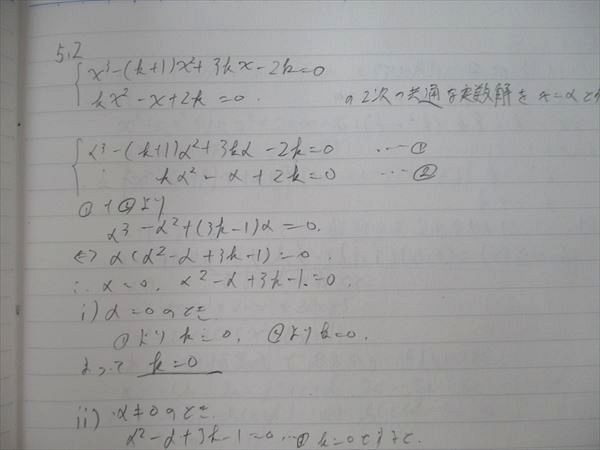 5.2
x³-(k+1)x²+3kx-2k=0
kx²-x+2k=0.
の2次の共通な実数解を x=αとお
α³-(k+1)α²+3kα-2k=0 …①
kα²-α+2k=0 …②
①+②より
α³-α²+(3k-1)α=0.
⇔ α(α²-α+3k-1)=0.
∴ α=0, α²-α+3k-1=0.
i) α=0のとき
①より k=0, ②より k=0.
よって k=0
ii) α≠0のとき
α²-α+3k-1=0 … k=0とすると.